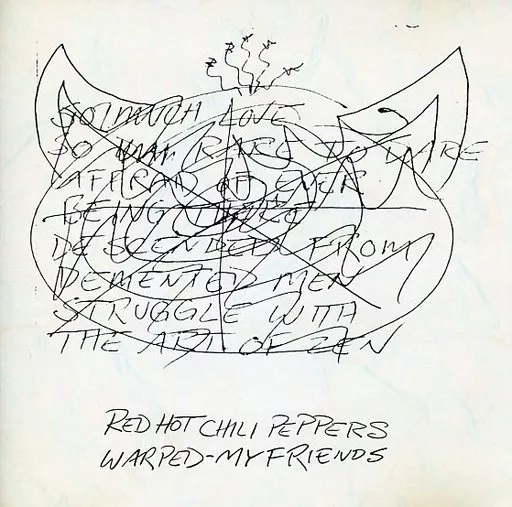 SO MUCH LOVE
SO RARE TO DARE
AFRAID OF EVER
BEING THERE
DESCENDED FROM
DEMENTED MEN
STRUGGLE WITH
THE ART OF ZEN
RED HOT CHILI PEPPERS
WARPED-MY FRIENDS